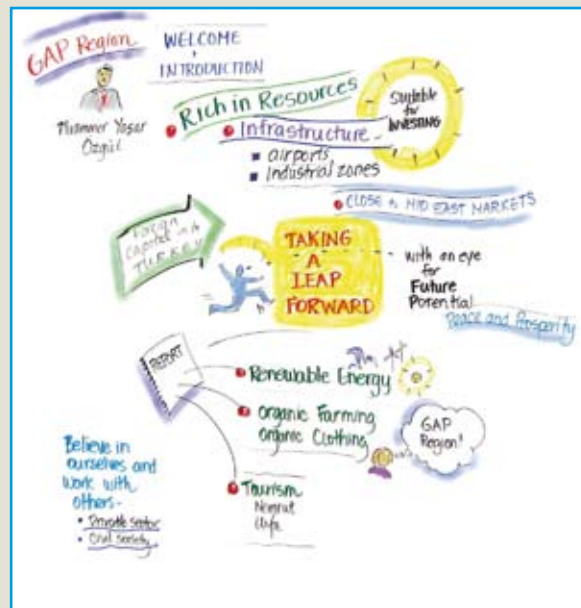 GAP Region
WELCOME
+
INTRODUCTION
Muammer Yaşar
Özgül
Rich in Resources
Infrastructure
airports
Industrial zones
Suitable
for
INVESTING
CLOSE to MID EAST MARKETS
Foreign
Capital into
TURKEY
TAKING
A
LEAP
FORWARD
with an eye
for
Future
Potential
Peace and Prosperity
REPORT
Renewable Energy
Organic Farming
organic Clothing
GAP
Region!
Tourism
Nemrut
Urfa
Believe in
ourselves and
work with
others-
Private Sector
Civil Society